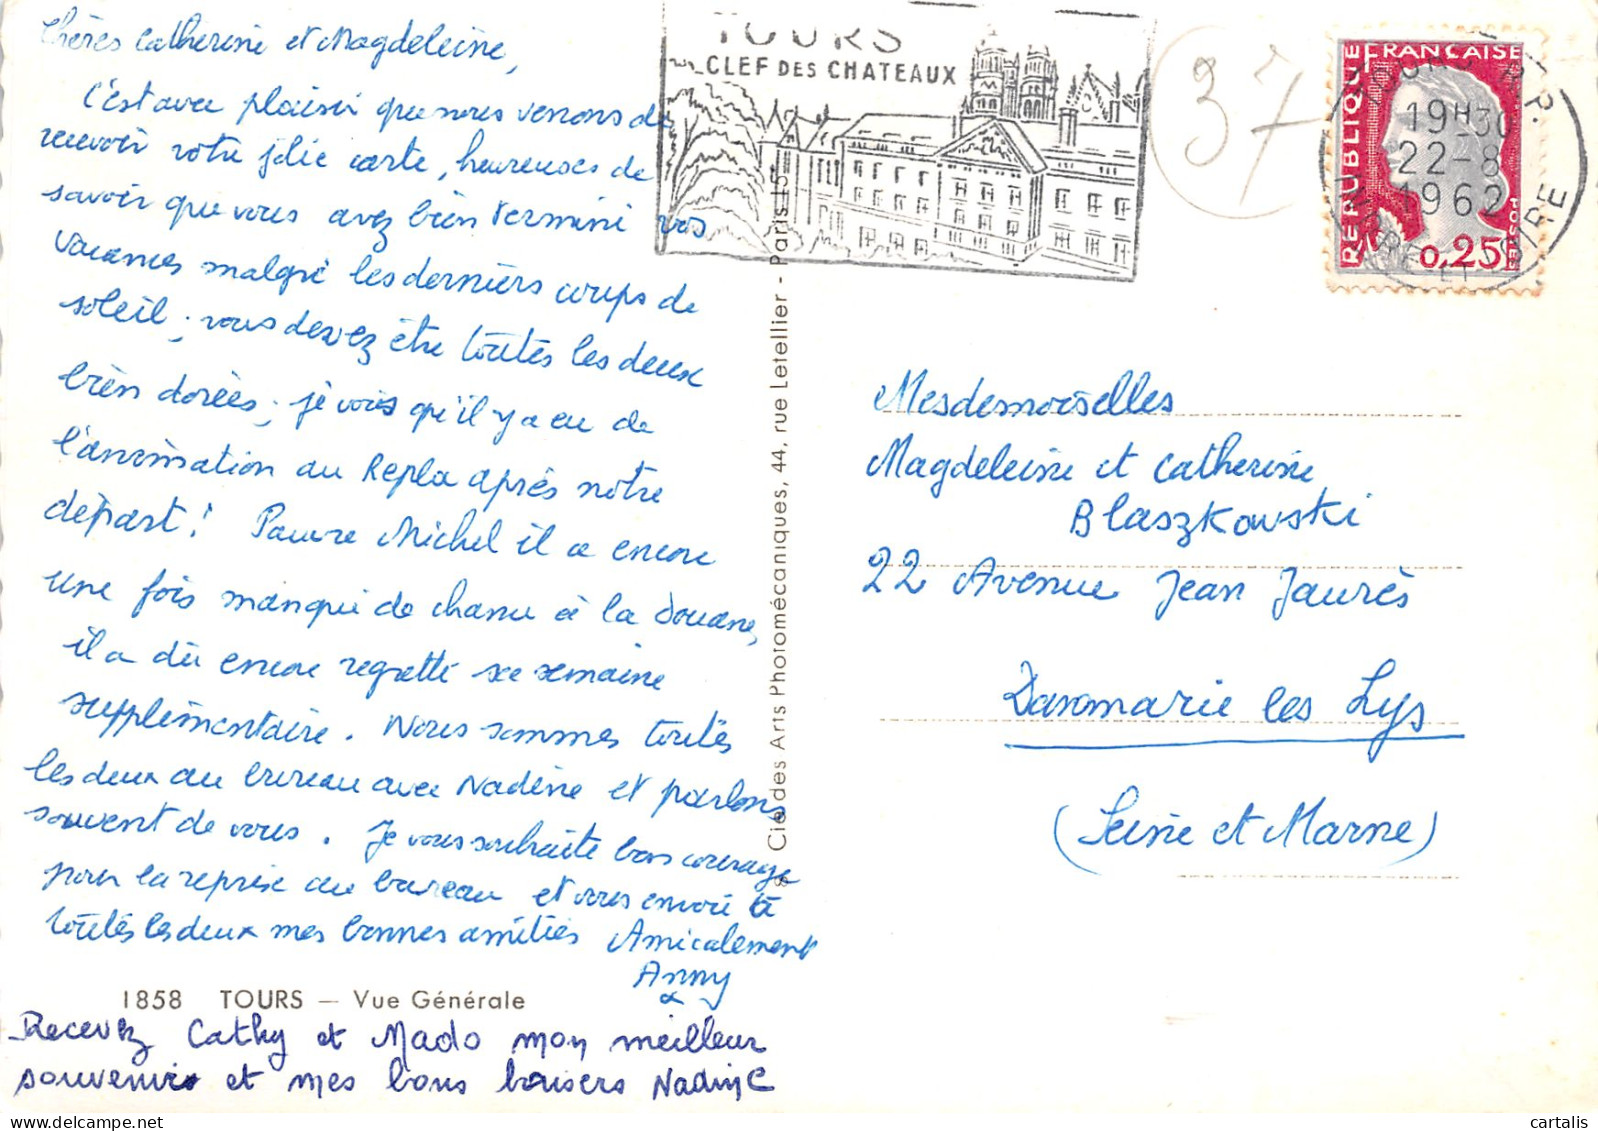 Chères Catherine et Magdeleine,
C'est avec plaisir que nous venons de
recevoir votre jolie carte, heureuses de
savoir que vous avez bien terminé vos
vacances malgré les derniers coups de
soleil ; vous devez être toutes les deux
bien dorées ; je vois qu'il y a eu de
l'animation au Repla après notre
départ ! Pauvre Michel il a encore
une fois manqué de chance à la Douane,
il a dû encore regretté sa semaine
supplémentaire. Nous sommes toutes
les deux au bureau avec Nadine et parlons
souvent de vous. Je vous souhaite bon courage
pour la reprise au bureau et vous envoie à
toutes les deux mes bonnes amitiés Amicalement
Anny
1858 TOURS — Vue Générale
Recevez Cathy et Mado mon meilleur
souvenir et mes bons baisers Nadine
Cie des Arts Photomécaniques, 44, rue Letellier - Paris 15e
TOURS
CLEF DES CHATEAUX
37
REPUBLIQUE FRANÇAISE
POSTES
0,25
TOURS R.P.
19H30
22-8
1962
INDRE ET LOIRE
Mesdemoiselles
Magdeleine et Catherine
Blaszkowski
22 Avenue Jean Jaurès
Dammarie les Lys
(Seine et Marne)
cartalis